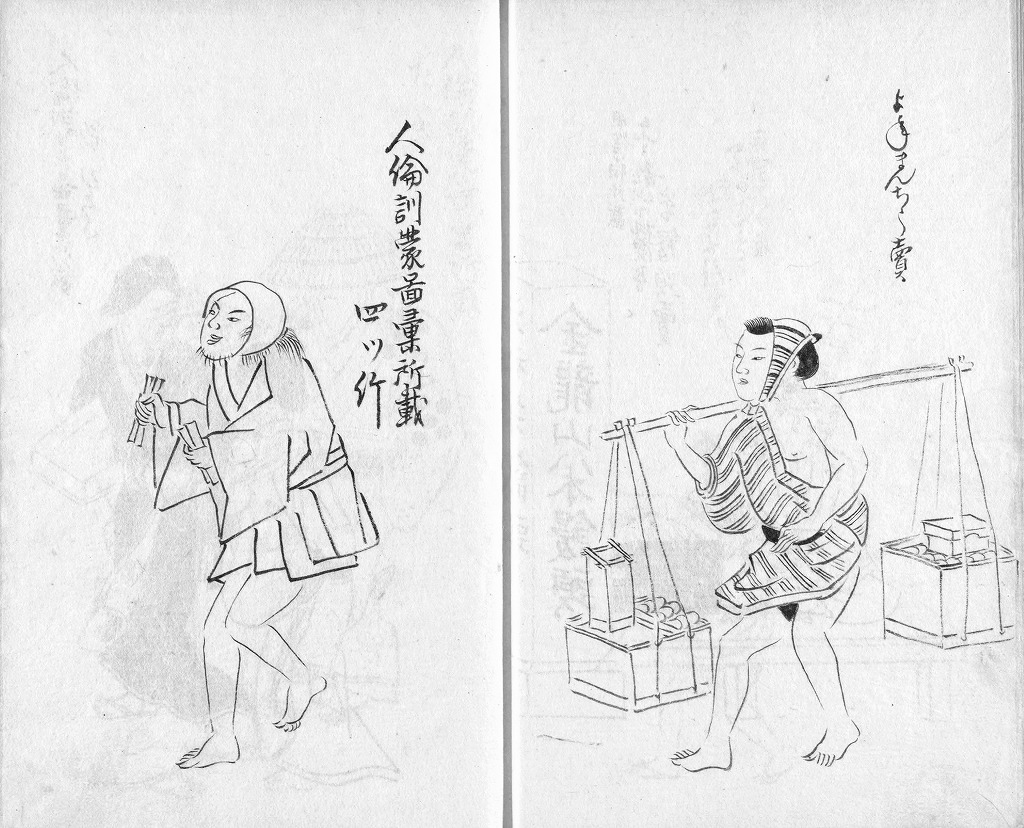 よねまんちう賣
人倫訓蒙啚彙所載
四ツ竹